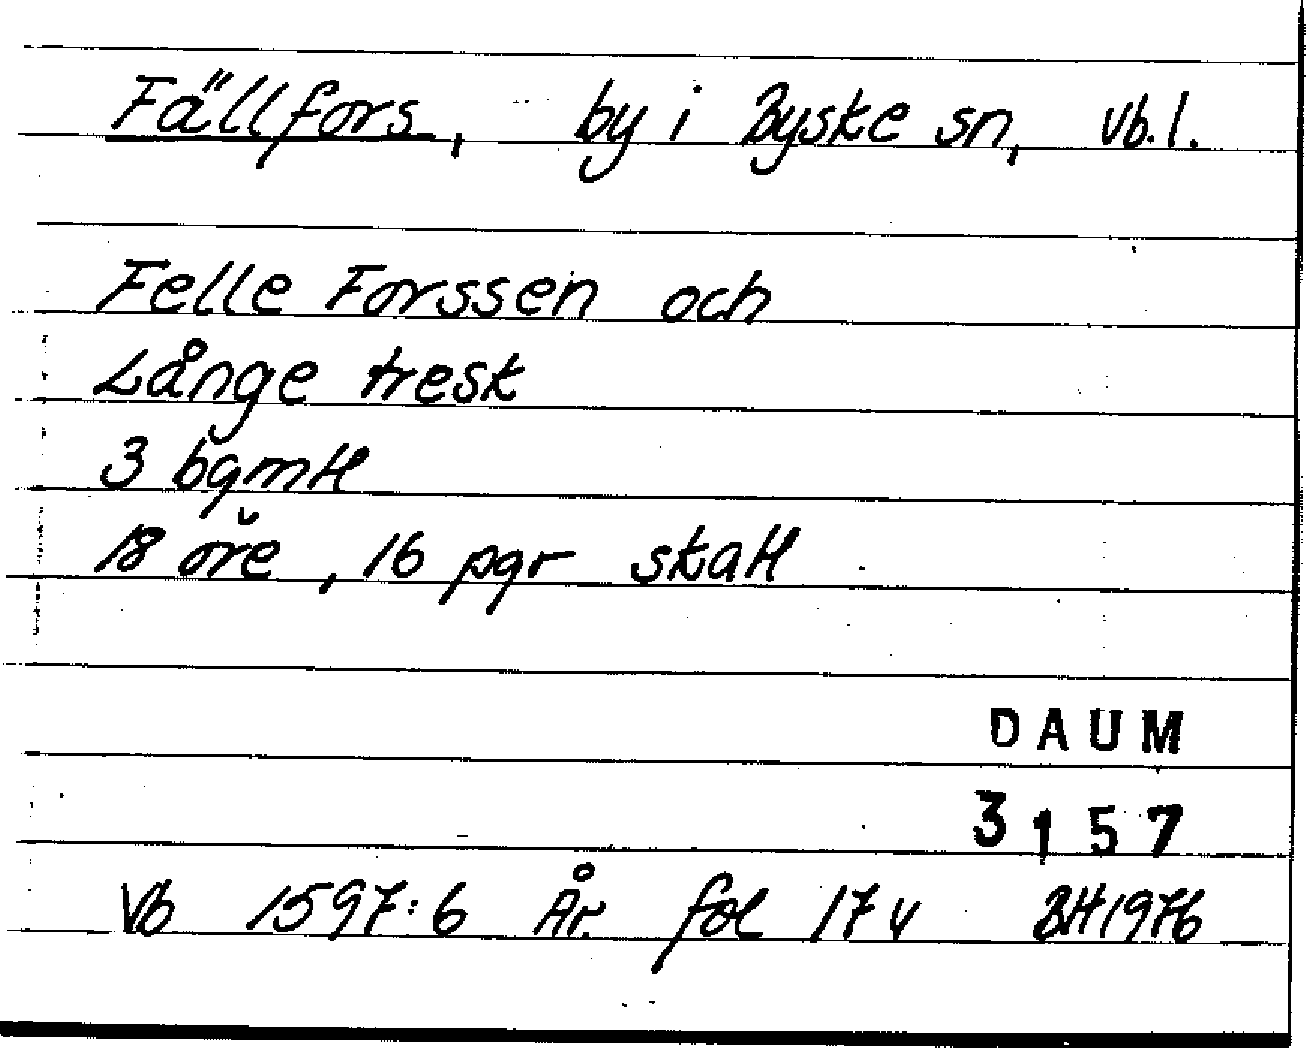 Fällfors, by i Byske sn, Vb. l.
Felle Forssen och
Långe tresk
3 bgmtl
18 öre, 16 pgr skatt
DAUM
3157
Vb 1597:6 År. fol 17 v BH 1976